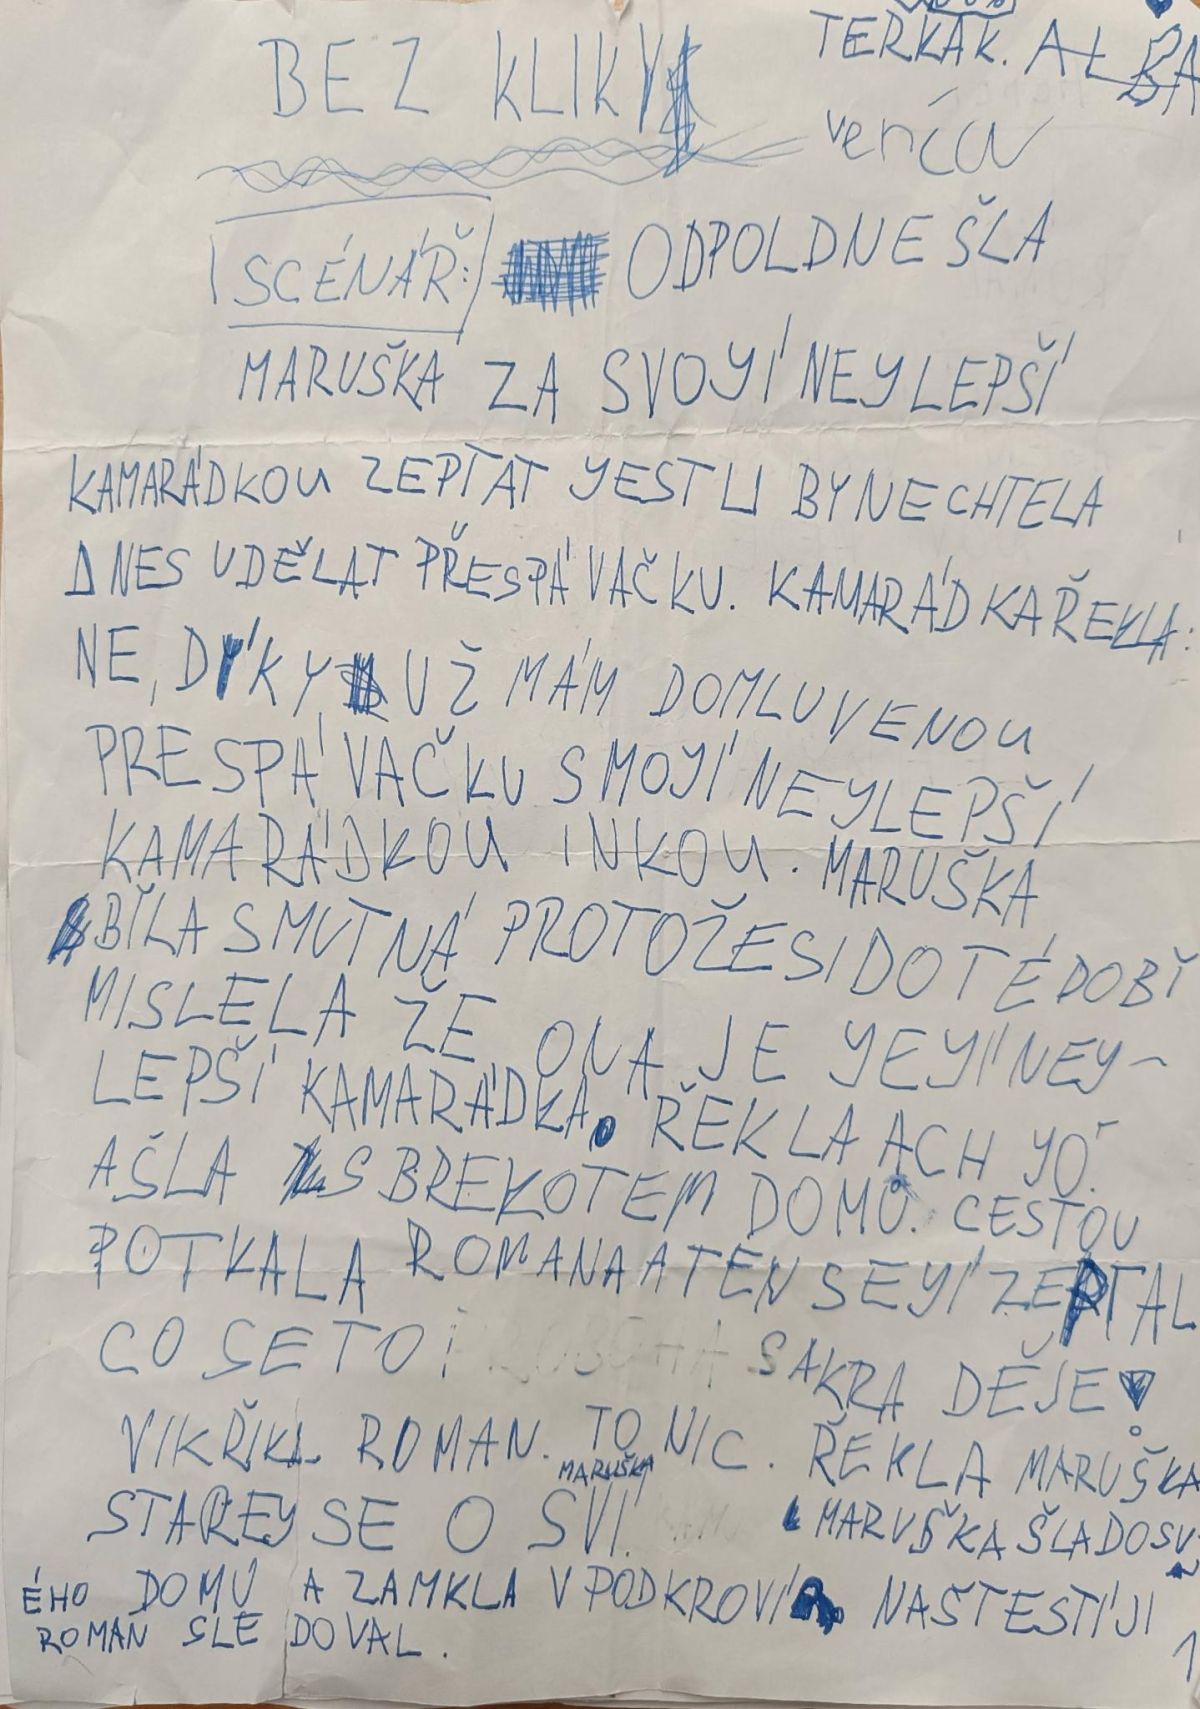 BEZ KLIKY
TERKA K. ALBA
SCÉNÁŘ: ODPOLDNE ŠLA
MARUŠKA ZA SVOYÍ NEYLEPŠÍ
KAMARÁDKOU ZEPTAT YESTLI BY NECHTELA
DNES UDĚLAT PŘESPÁVAČKU. KAMARÁDKA ŘEKLA:
NE, DÝKY UŽ MÁM DOMLUVENOU
PRESPÁVAČKU S MOYÍ NEYLEPŠÍ
KAMARÁDKOU INKOU. MARUŠKA
BĬLA SMUTNÁ PROTOŽE SI DO TÉ DOBĬ
MISLELA ŽE ONA JE YEYÍ NEY-
LEPŠÍ KAMARÁDKA. ŘEKLA ACH YÓ.
A ŠLA S BREKOTEM DOMŮ. CESTOU
POTKALA ROMANA A TEN SE YÍ ZEPTAL
CO SE TO SAKRA DĚJE!
VIKŘIKL ROMAN. TO NIC. ŘEKLA MARUŠKA
MARUŠKA
STAREY SE O SVÍ. MARUŠKA ŠLA DO SV-
ÉHO DOMŮ A ZAMKLA V PODKROVÍ NAŠTESTÍ JI
ROMAN SLEDOVAL.
1